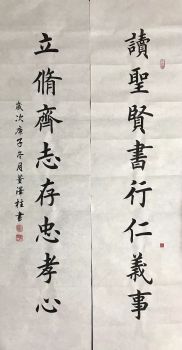 讀聖賢書行仁義事
立脩齊志存忠孝心
歲次庚子冬月姜澤桂書